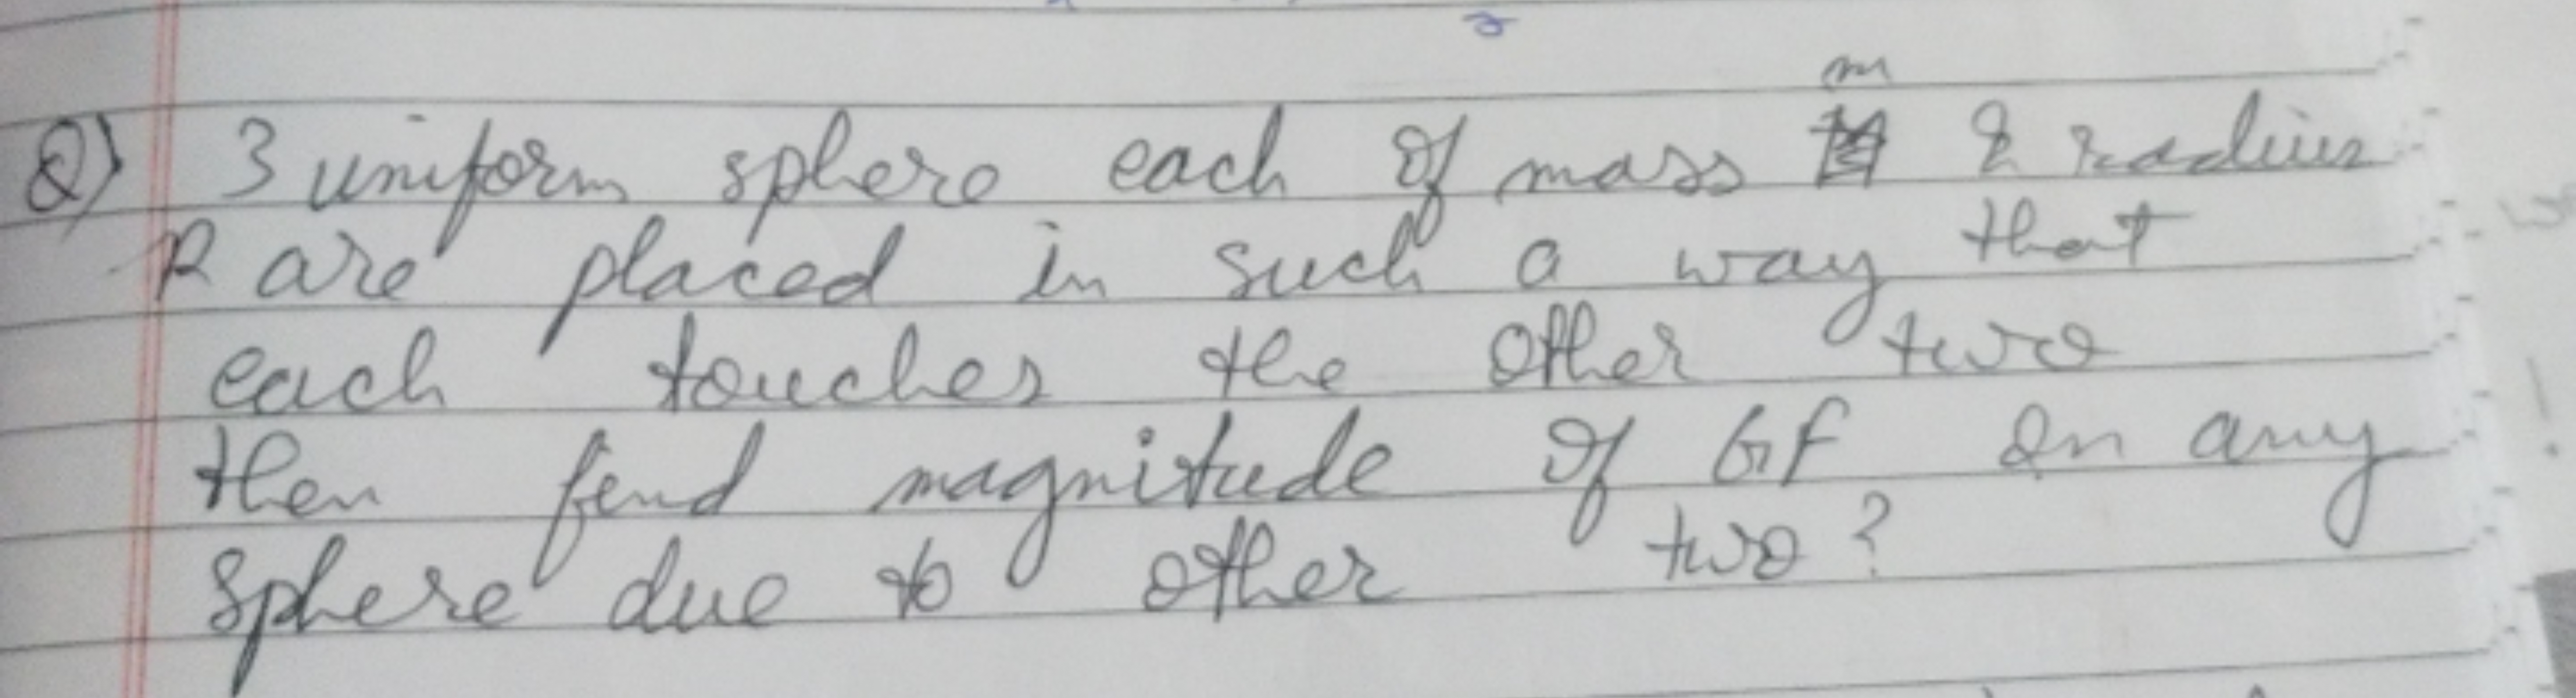 Q) 3 uniform sphere each of mass m & radius
R are placed in such a way that
each touches the other two
then find magnitude of GF on any
sphere due to other two?